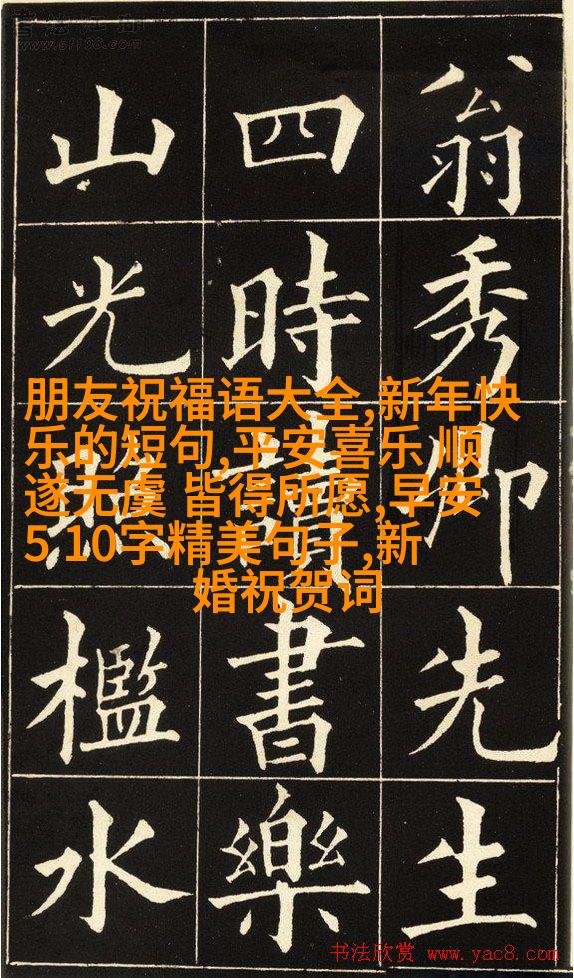 翁秀卿先生
四時讀書樂
山光照檻水
朋友祝福语大全,新年快
乐的短句,平安喜乐 顺
遂无虞 皆得所愿,早安
5 10字精美句子,新
婚祝贺词
www.sf108.com
书法欣赏 www.yac8.com